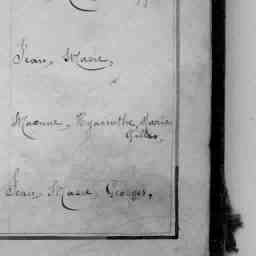 Jean, Marie,
Maxime, Hyacinthe, Marie
Gilles,
Jean, Marie, Georges,